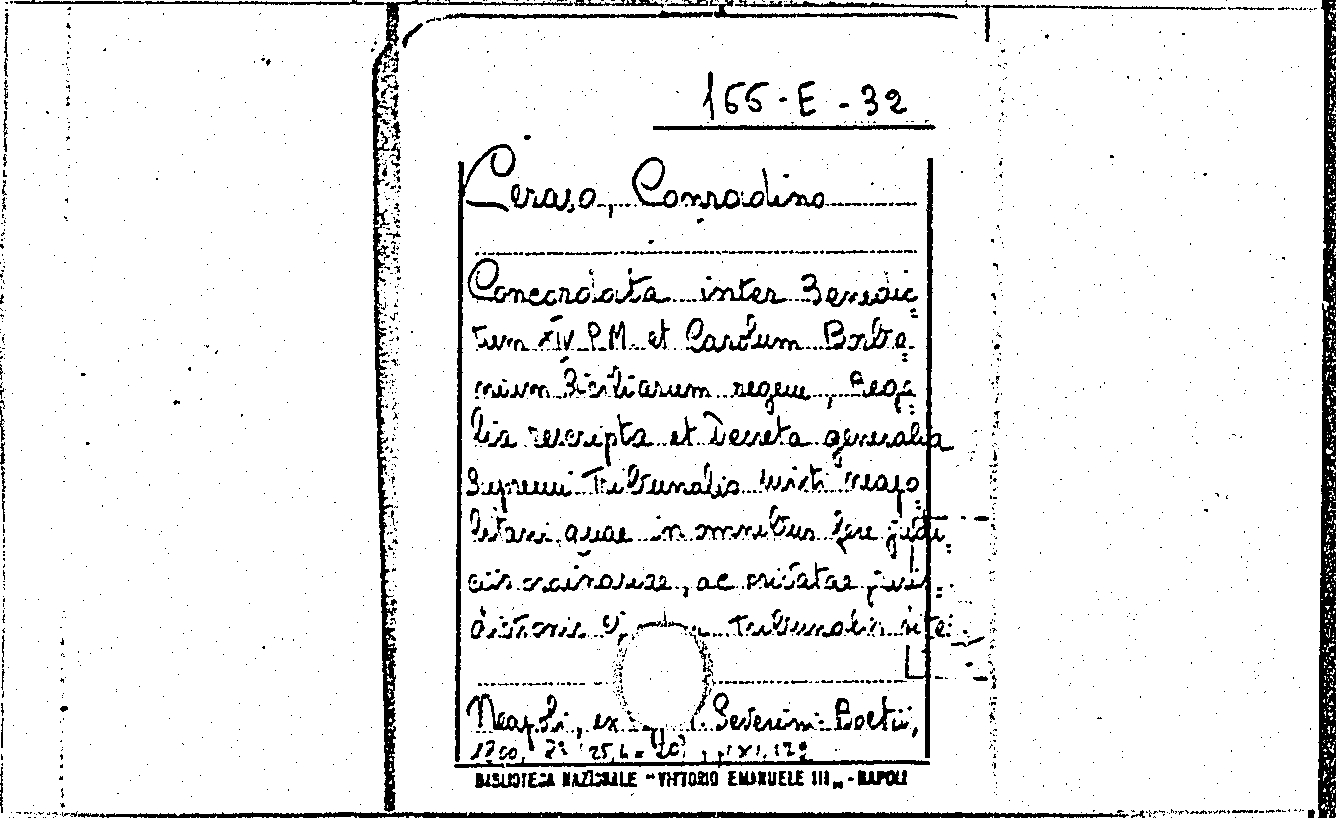 155-E-32
Ceraso, Conradino
Concordata inter Benedic=
tum XIV P.M. et Carolum Borbo=
nium Siciliarum regem, Rega=
lia rescripta et Decreta generalia
Supremi Tribunalis Misti neapo=
litani quae in omnibus fere judi=
ciis ordinariae, ac
dictionis Tribunalis
Neapoli, ex Severini Boetii,
BIBLIOTECA NAZIONALE "VITTORIO EMANUELE III„ - NAPOLI